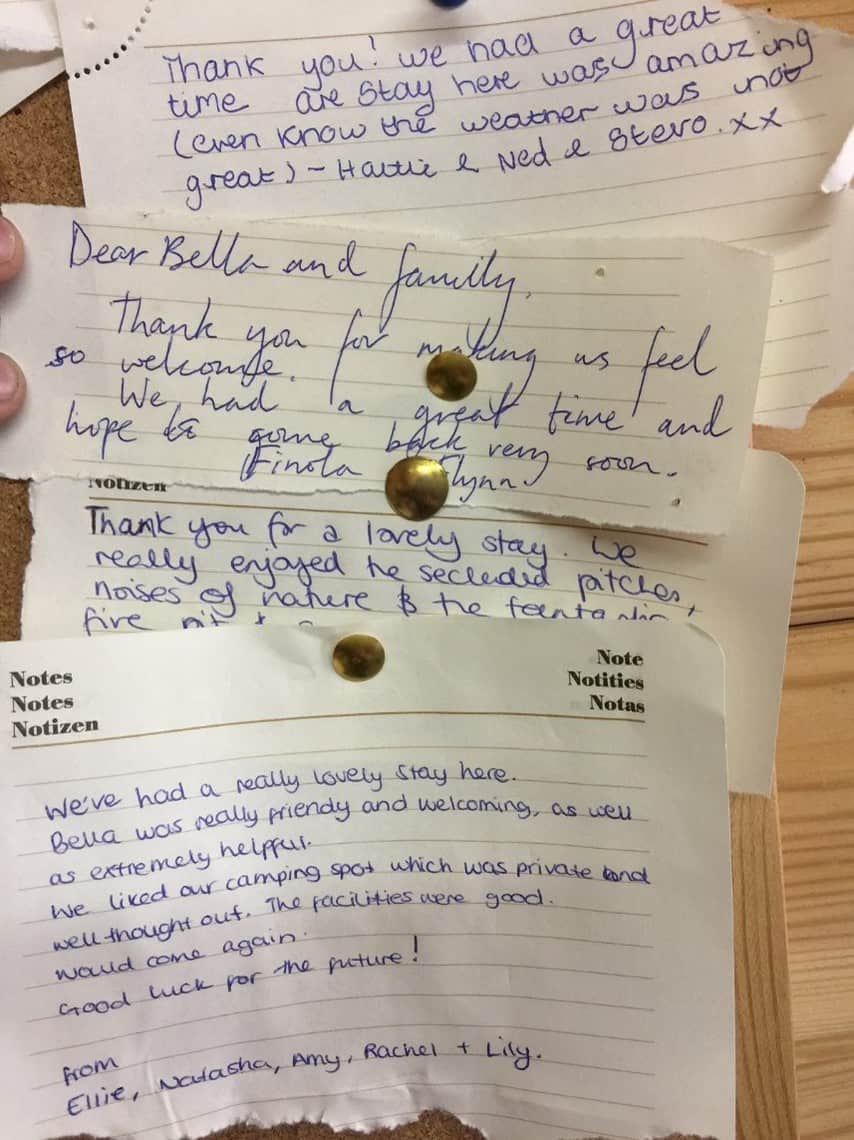 Thank you! we had a great
time are stay here was amazing
(even know the weather was not
great) - Hattie & Ned & Stevo. xx
Dear Bella and family,
Thank you for making us feel
so welcome.
We had a great time and
hope to come back very soon.
Finola Flynn
Notizen
Thank you for a lovely stay. We
really enjoyed the secluded pitches,
noises of nature & the
fire pit +
Notes
Notes
Notizen
Note
Notities
Notas
We've had a really lovely stay here.
Bella was really friendy and welcoming, as well
as extremely helpful.
We liked our camping spot which was private and
well thought out. The facilities were good.
would come again.
Good luck for the future!
From
Ellie, Natasha, Amy, Rachel + Lily.